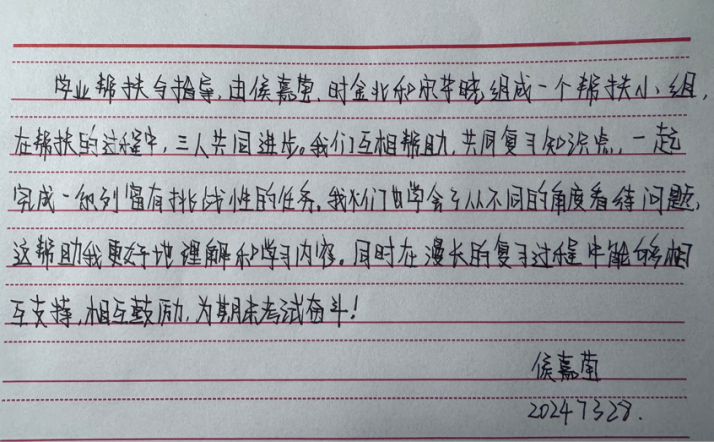 学业帮扶与指导,由侯嘉萤、时金北和宋苹晓组成一个帮扶小组,
在帮扶的过程中,三人共同进步。我们互相帮助,共同复习知识点,一起
完成一系列富有挑战性的任务。我们也学会了从不同的角度看待问题,
这帮助我更好地理解和学习内容。同时在漫长的复习过程中能够相
互支持,相互鼓励,为期末考试奋斗!
侯嘉萤
2024 7 3 28.